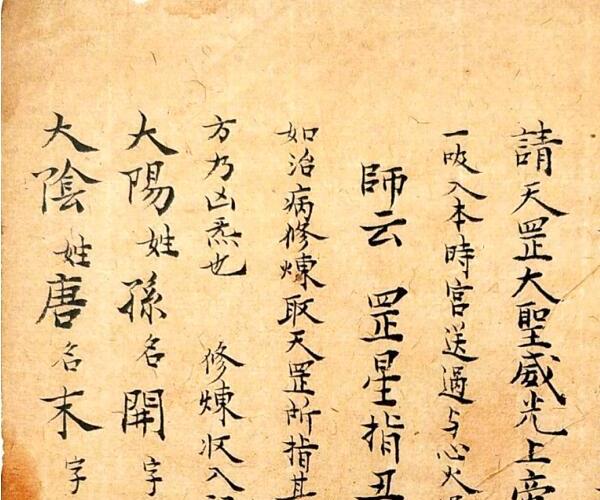 請天罡大聖威光上帝
一吸入本時宮送過与心火
師云 罡星指丑
如治病修煉取天罡所指其
方乃凶炁也 修煉収入
大陽姓孫名開字
大陰姓唐名末字